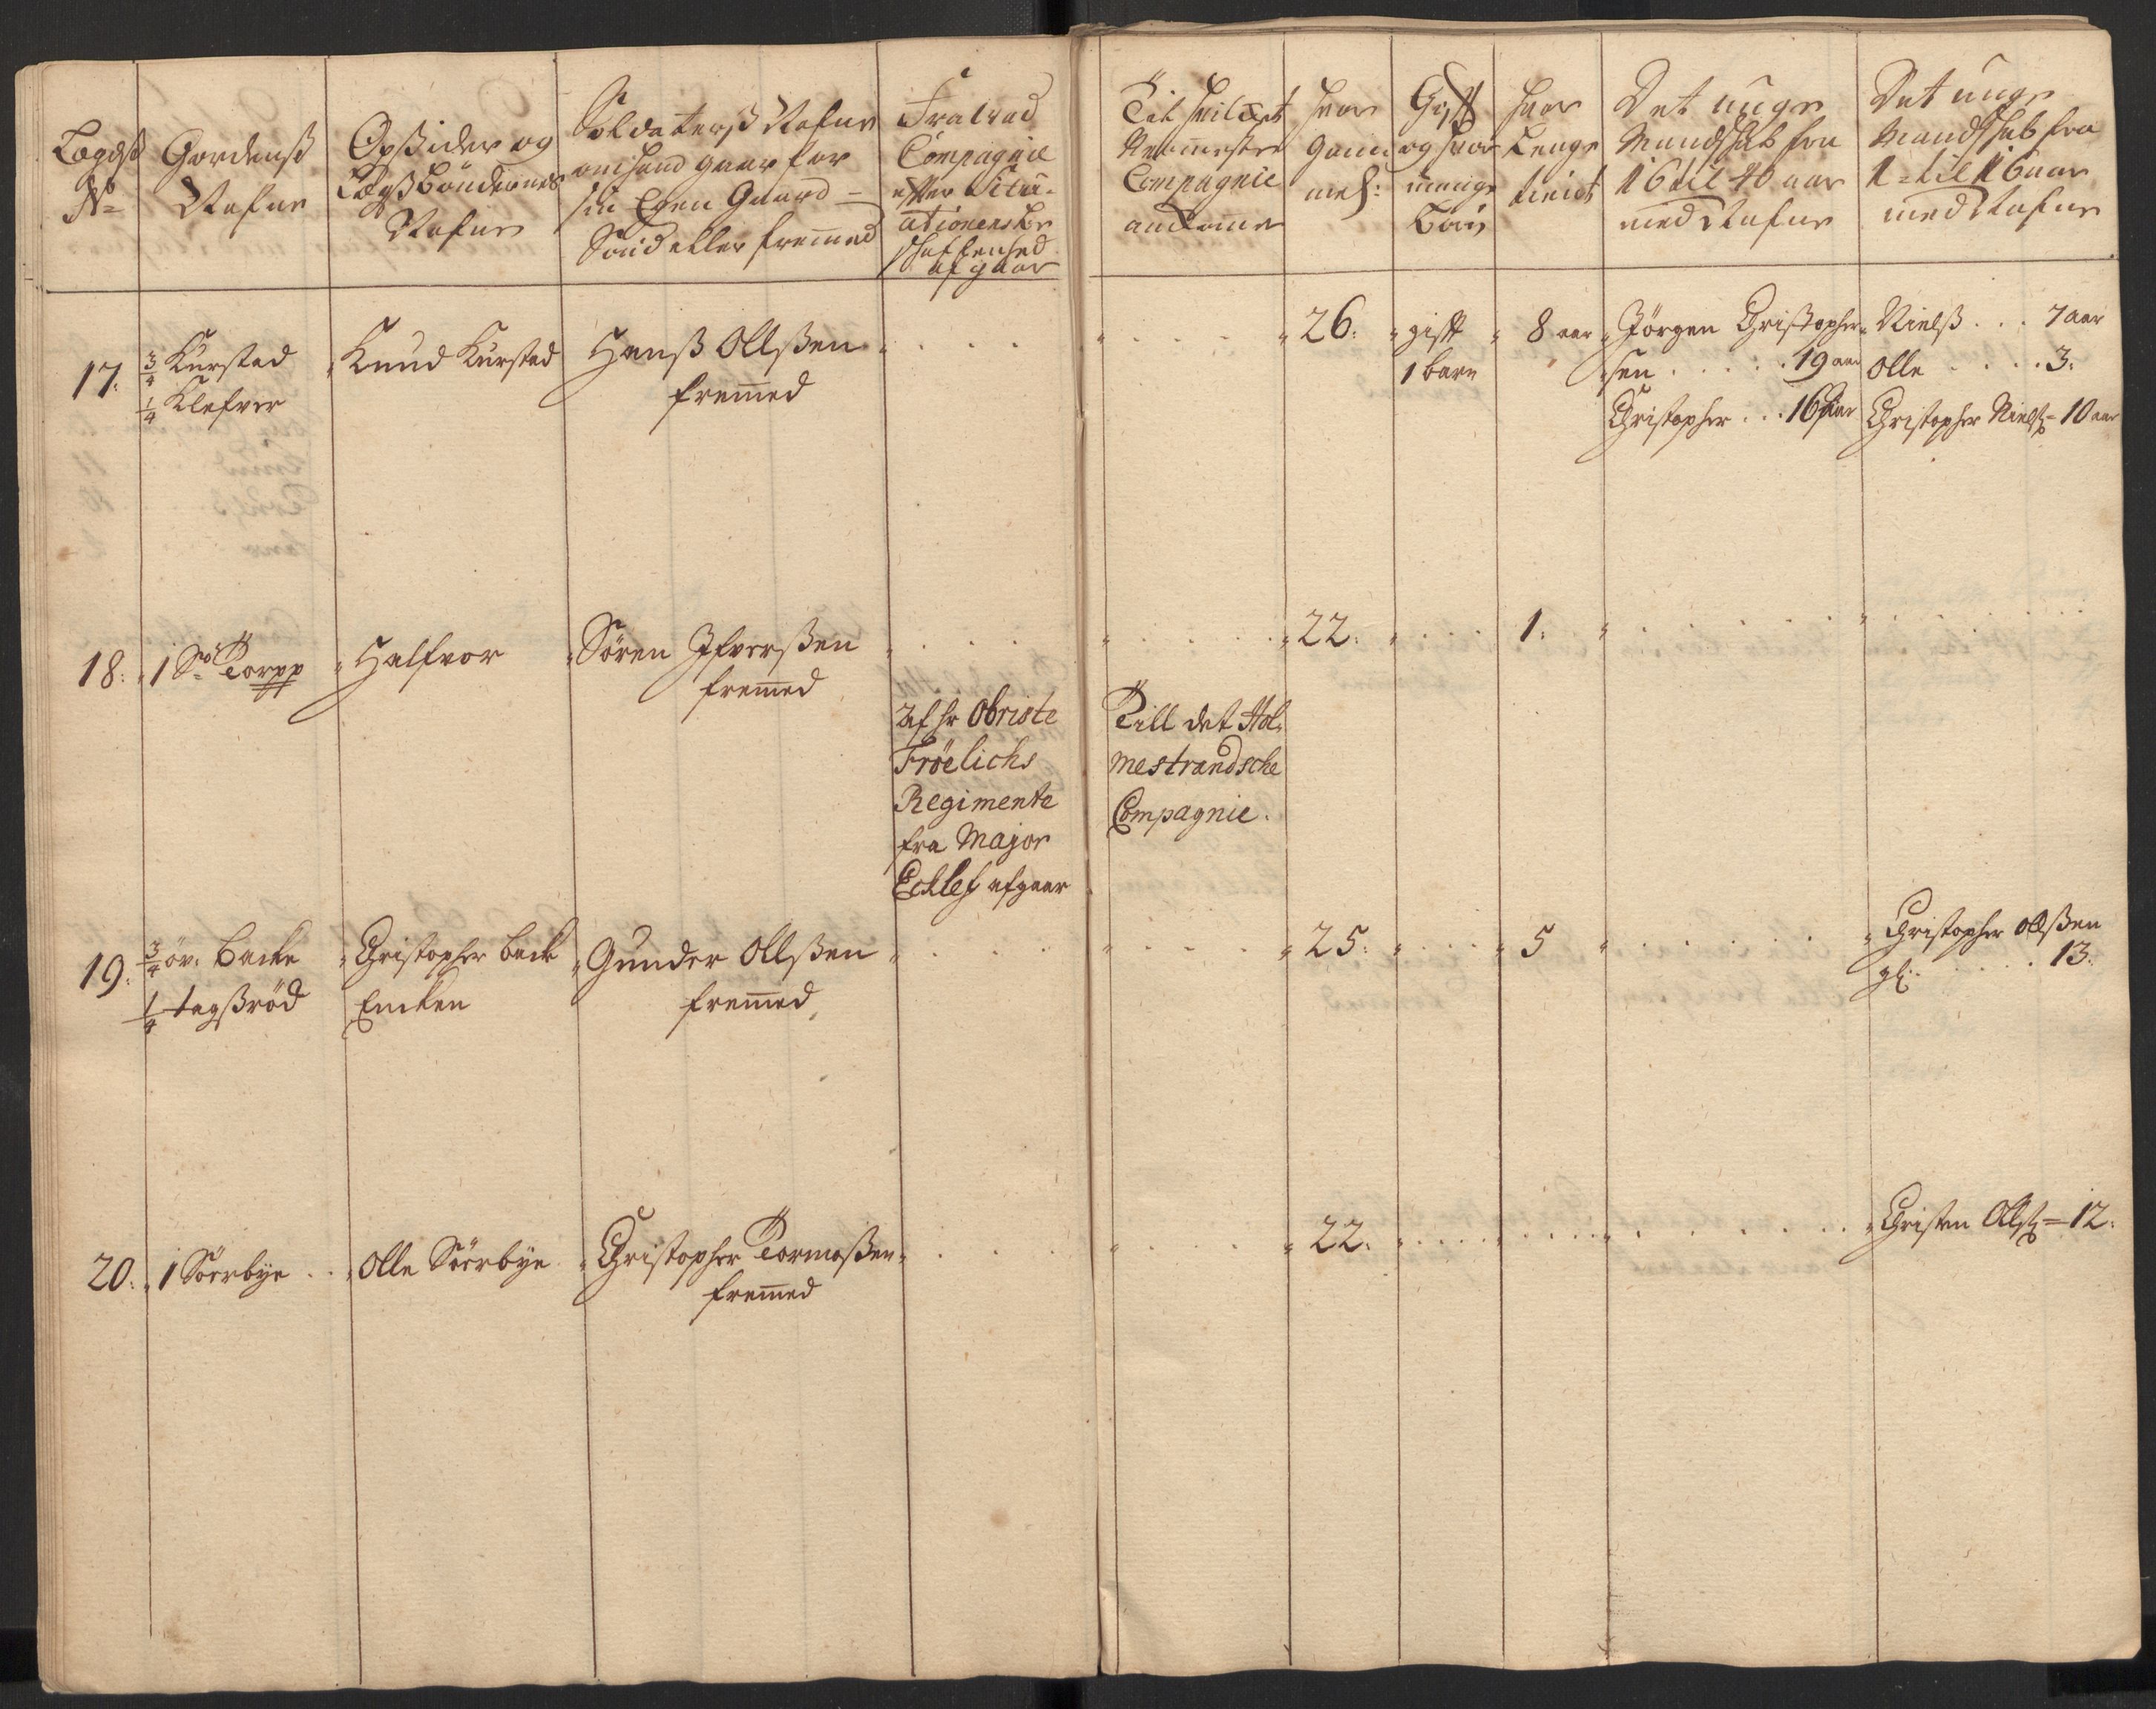 Legdß
No
Gordenß
Nafne
Opßider og
Legßböndernes
Nafne
Soldaterß Nafne
om hand gaar for
sin Egen Gaard
Sönd eller fremmed
Fra hvad
Compagnie
efter Situa-
ationens be
skaffenhed
afgaar
Til hvilcket
Nermeste
Compagnie
ankomme
hvor
Gam
mel:
Gifft
og hvor
mange
börn
hvor
Lenge
tient
Det unge
Mandskab fra
16 til 40 aar
med Nafne
Det unge
Mandskab fra
1 = til 16 aar
med Nafne
17: 3/4 Kurstad
1/4 Klefver
Knud Kurstad
Hanß Ollßen
fremmed
26:
gifft
1 barn
8 aar
Jörgen Christopher
sen . . . . 19 aar
Christopher . . . 16 aar
Nielß . . . 7 aar
Olle . . . . 3:
Christopher Nielß = 10 aar
18: 1 Sö: Torpp
Halfvor
Sören Ifverßen
fremmed
22:
1:
Af hr Obriste
Fröelichs
Regimente
fra Major
Ecklef afgaar
Till det Hol-
mestrandsche
Compagnie.
19: 3/4 öv: Backe
1/4 tagßröd
Christopher back
Encken
Gunder Ollßen
fremmed
25:
5
Christopher Ollßen
gl: . . . . 13:
20: 1 Söerbÿe . .
Olle Söerbÿe
Christopher Tormoßen
fremmed
22:
Christen Ollß = 12: